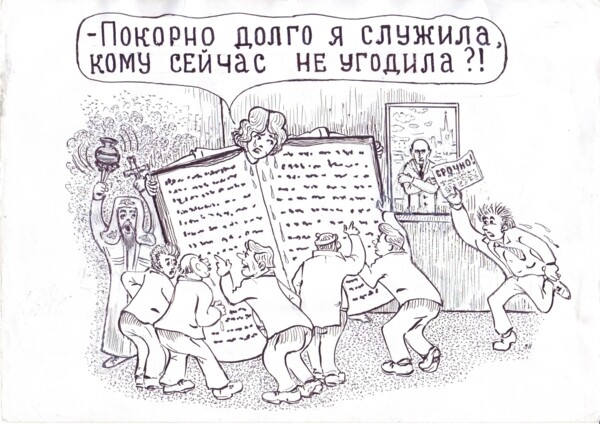 -Покорно долго я служила,
кому сейчас не угодила?!
СРОЧНО!